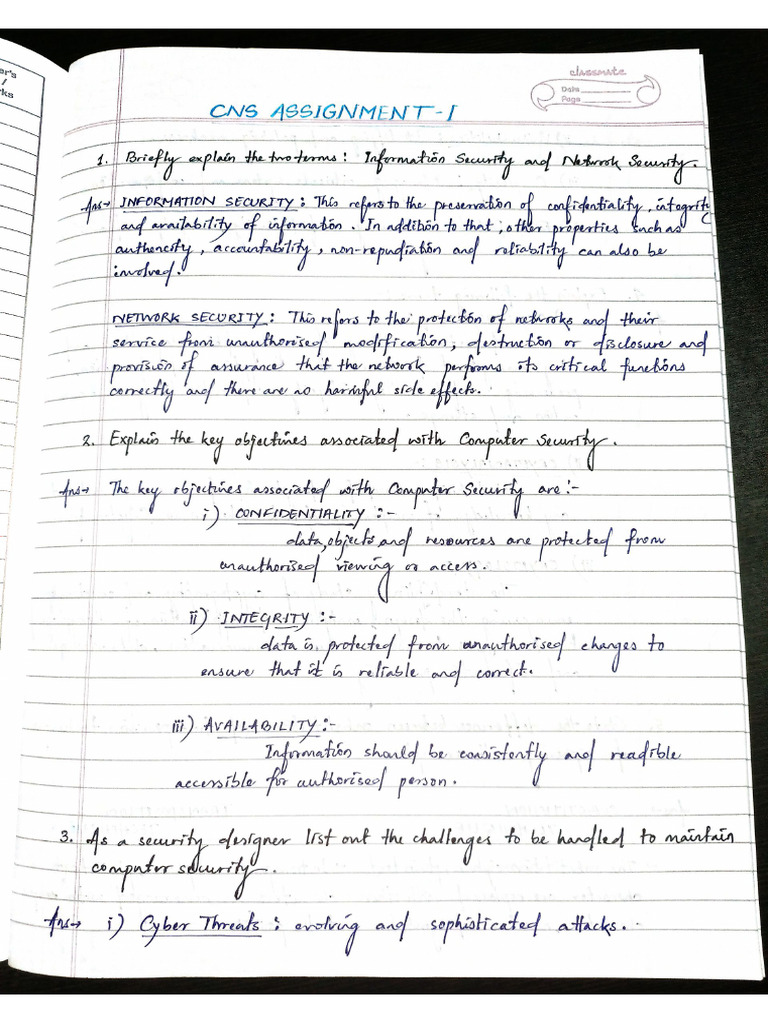 er's
/
rks
classmate
Date
Page
CNS ASSIGNMENT-I
1. Briefly explain the two terms: Information Security and Network Security.
Ans→ INFORMATION SECURITY: This refers to the preservation of confidentiality, integrity
and availability of information. In addition to that, other properties such as
authencity, accountability, non-repudiation and reliability can also be
involved.
NETWORK SECURITY: This refers to the protection of networks and their
service from unauthorised modification, destruction or disclosure and
provision of assurance that the network performs its critical functions
correctly and there are no harmful side effects.
2. Explain the key objectines associated with Computer Security.
Ans→ The key objectines associated with Computer Security are:-
i) CONFIDENTIALITY :-
data, objects and resources are protected from
unauthorised viewing or access.
ii) INTEGRITY :-
data is protected from unauthorised changes to
ensure that it is reliable and correct.
iii) AVAILABILITY:-
Information should be consistently and readible
accessible for authorised person.
3. As a security designer list out the challenges to be handled to maintain
computer security.
Ans→ i) Cyber Threats: evolving and sophisticated attacks.